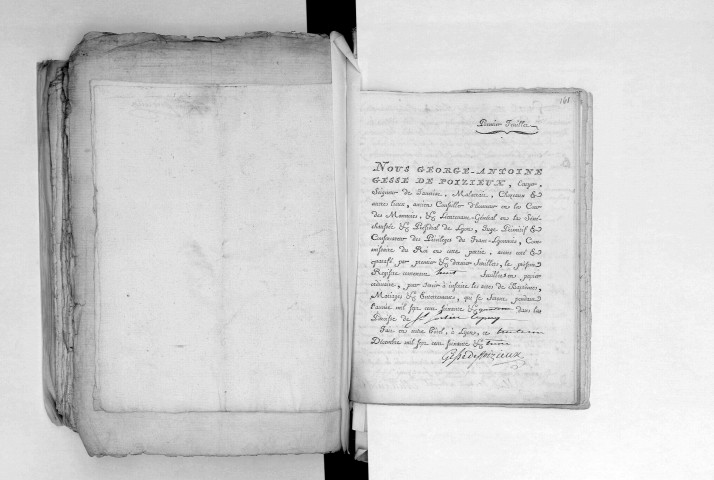 161
Premier Feuillet
NOUS GEORGE-ANTOINE
GESSÉ DE POIZIEUX, Ecuyer,
Seigneur de Jannéiac, Malatrait, Chozeaux &
autres lieux, ancien Conseiller d'honneur en la Cour
des Monnoies, & Lieutenant-Général en la Séné-
chaussée & Présidial de Lyon, Juge Primitif &
Conservateur des Privileges du Franc-Lyonnois, Com-
missaire du Roi en cette partie, avons coté &
paraphé, par premier & dernier feuillets, le présent
Registre contenant huit feuillets en papier
ordinaire, pour servir à inscrire les actes de Baptêmes,
Mariages & Enterremens, qui se feront pendant
l'année mil sept cent soixante & dans la
Paroisse de St
Fait en notre Hôtel, à Lyon, ce
Décembre mil sept cent soixante &
Gessé de Poizieux